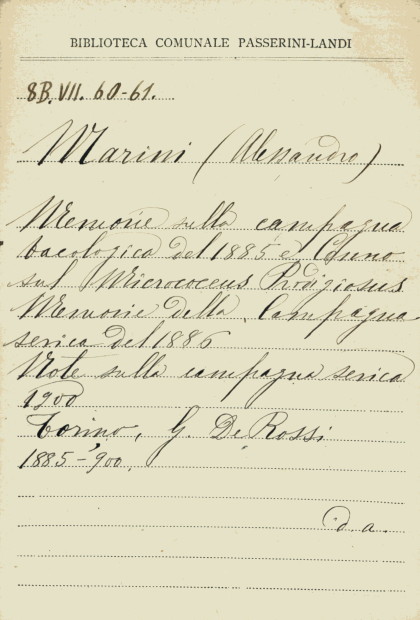 BIBLIOTECA COMUNALE PASSERINI-LANDI
8B. VII. 60-61.
Marini (Alessandro)
Memorie sulla campagna
bacologica del 1885 e Cenno
sul Micrococcus Prodigiosus
Memorie della Campagna
serica del 1886
Note sulla campagna serica
1900
Torino, G. De Rossi
1885-900.
d. a.